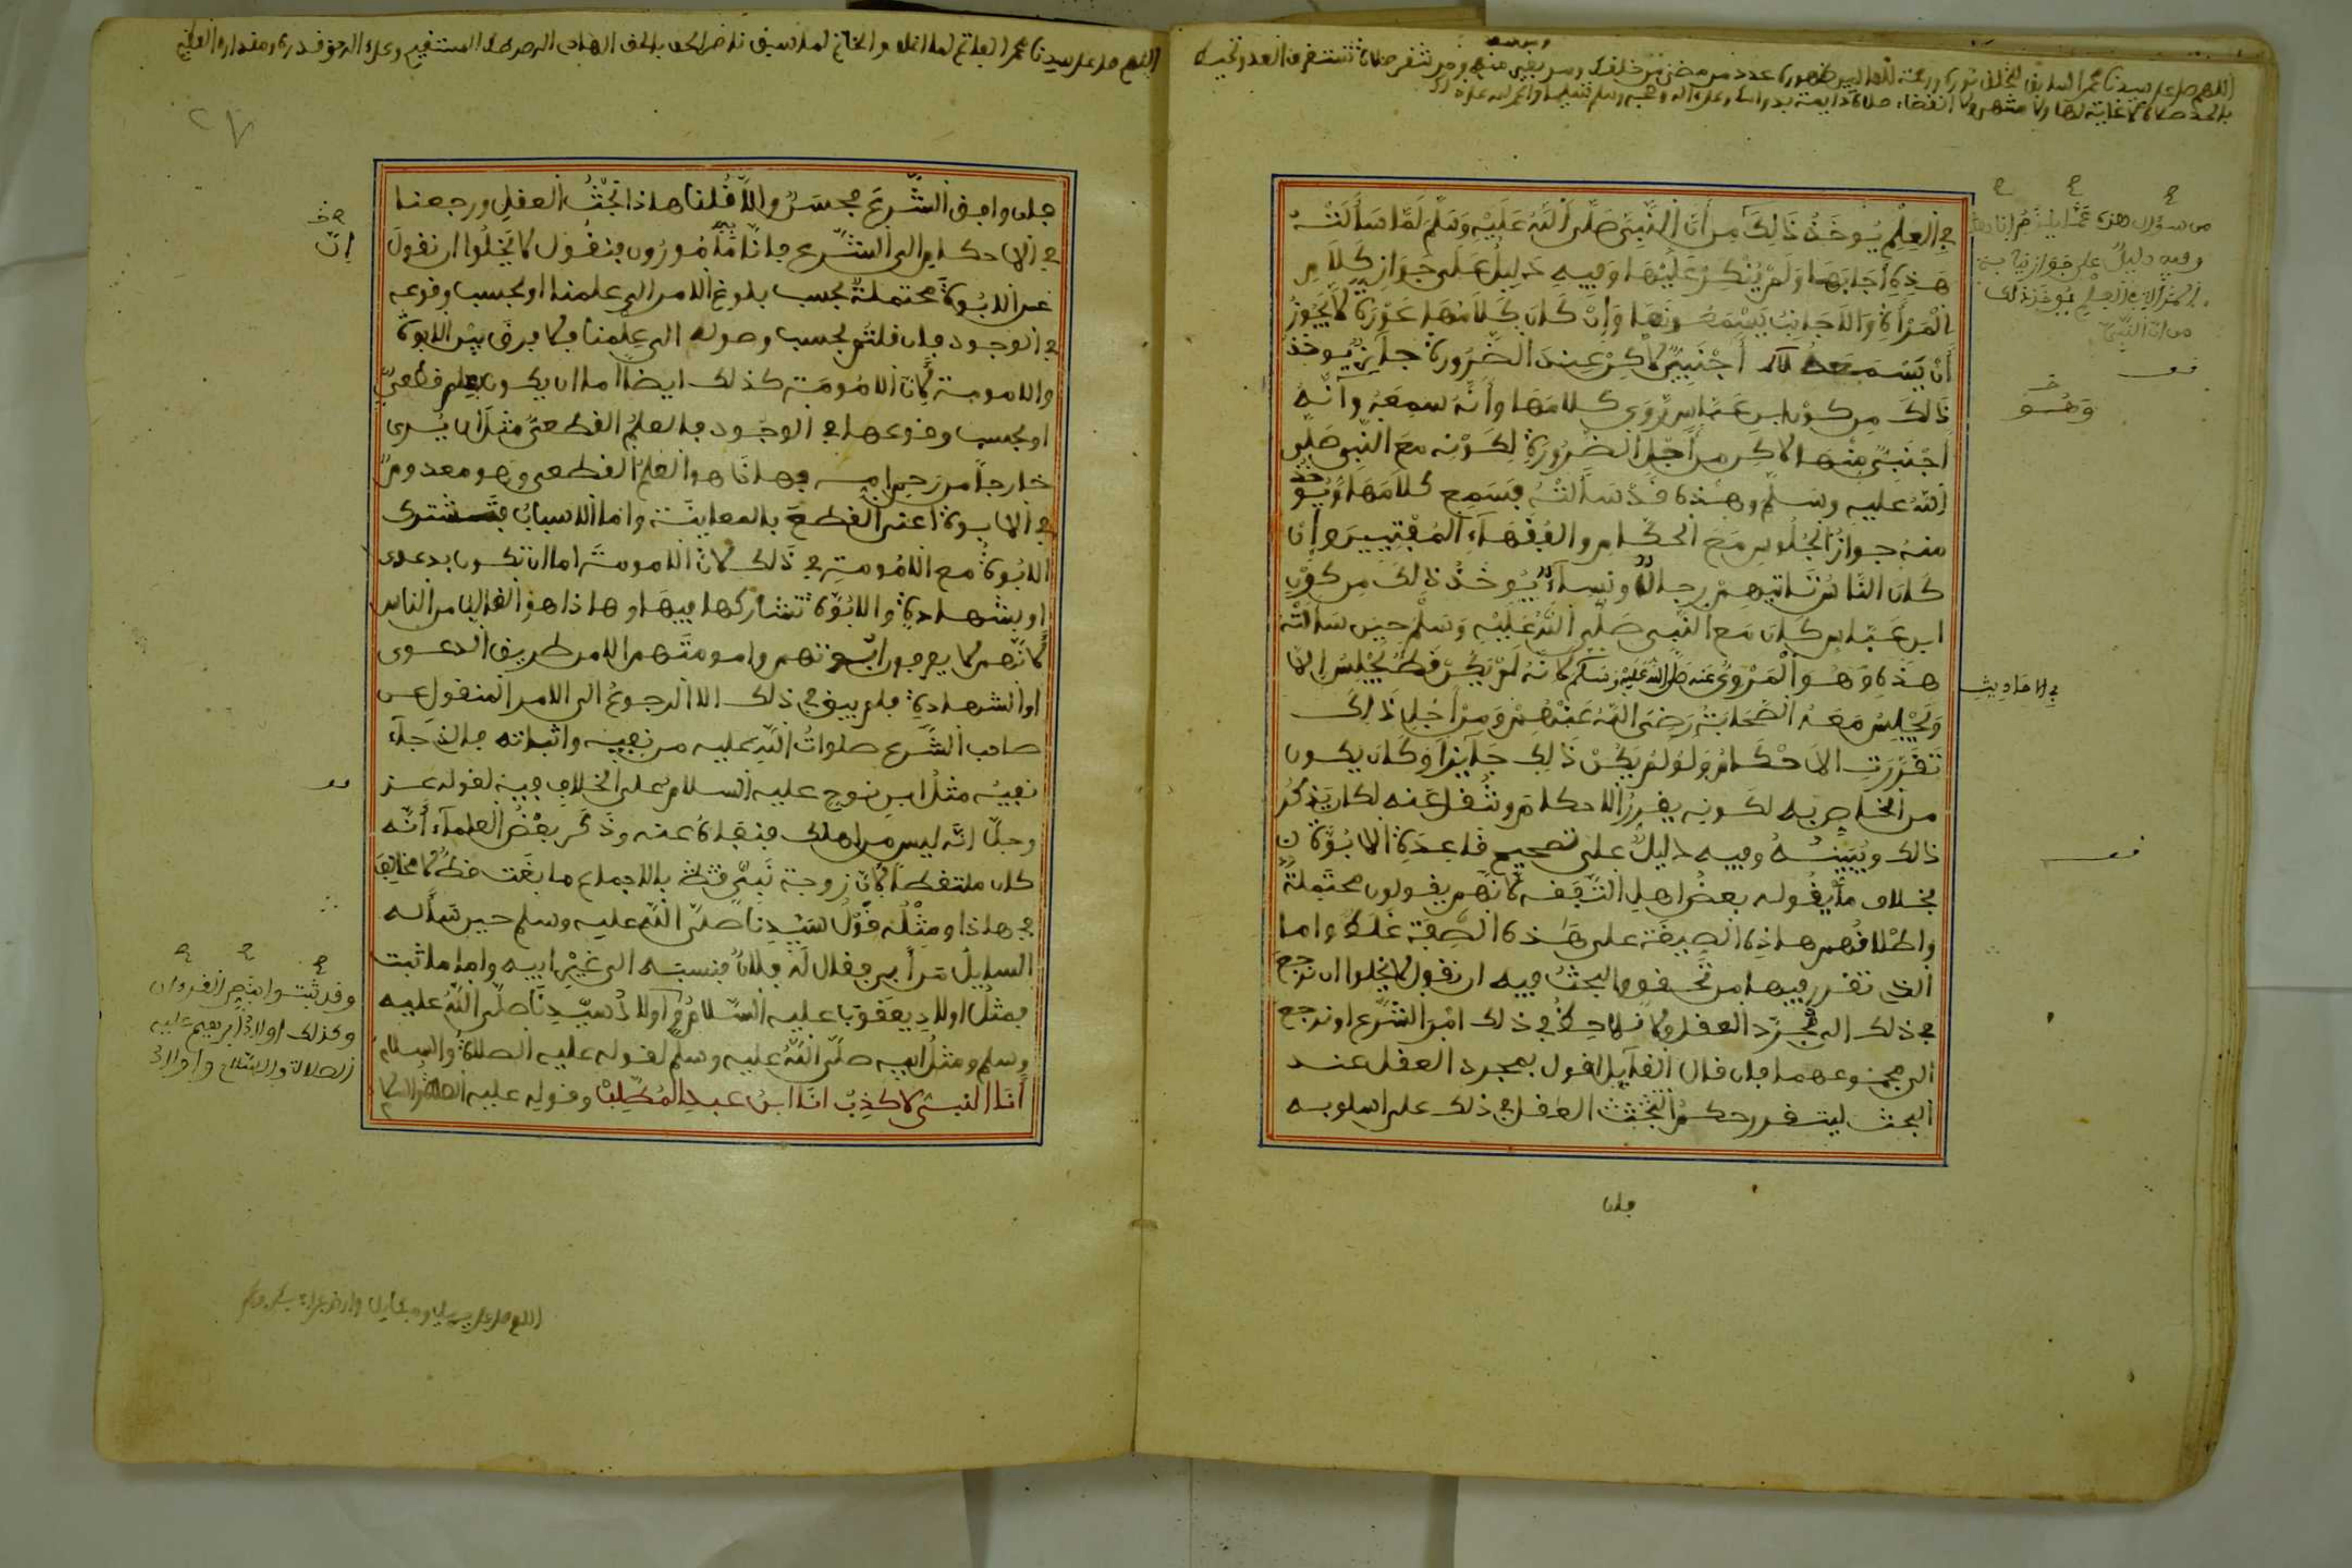 في العلم يوخذ ذلك من أن النبي صلى الله عليه وسلم لما سألته
هذه أجابها ولم ينكر عليها وفيه دليل على جواز كلام
المرأة والأجانب يسمعونها وإن كان كلامها عورة لا يجوز
أن يسمعه أجنبي لاكن عند الضرورة جايز يوخذ
ذالك من كون ابن عباس روى كلامها وأنه سمعه وأنه
اجنبي منها لاكن من أجل الضرورة لكونه مع النبي صلى
الله عليه وسلم وهذه قد سألته فسمع كلامها ويوخذ
منه جواز الجلوس مع الحكام والفقهاء المفتيين وإن
كان الناس تاتيهم رجالا ونساء يوخذ ذلك من كون
ابن عباس كان مع النبي صلى الله عليه وسلم حين سألته
هذه وهو المروي عنه صلى الله عليه وسلم لأنه لم يكن قط يجلس إلا
ويجلس معه الصحابة رضي الله عنهم ومن أجل ذلك
تقررت الاحكام ولو لم يكن ذلك جايزا وكان يكون
من الخاص به لكونه يقرر الاحكام وتنقل عنه لكان يذكر
ذالك ويبينه وفيه دليل على تصحيح قاعدة الابوة
بخلاف ما يقوله بعض اهل الفقه لأنهم يقولون محتملة
واطلاقهم هاذه الصيغة على هذه الصفة غلط واما
الذي تقرر فيها من تحقق البحث فيه ان نقول لا يخلوا ان نرجع
في ذلك الى مجرد العقل ولا نلاحظ في ذلك امر الشرع او نرجع
الى مجموعهما فان قال القايل اقول بمجرد العقل عند
البحث ليتقرر حكم البحث العقل في ذلك على اسلوبه
فان
في الاحاديث
وهو
٢٧
فان وافق الشرع فحسن والا قلنا هاذا بحث العقل ورجعنا
في الاحكام الى الشرع فانا مامورون فنقول لا يخلوا ان نقول
عن الابوة محتملة بحسب بلوغ الامر الى علمنا او بحسب وقوعه
في الوجود فان قلتم بحسب وصوله الى علمنا فلا فرق بين الابوة
والامومة لأن الامومة كذلك ايضا اما ان يكون بعلم قطعي
او بحسب وقوعها في الوجود فالعلم القطعي مثل ان يرى
خارجا من رحم امه فهاذا هو العلم القطعي وهو معدوم
في الابوة اعني القطع بالمعاينة واما الاسباب فتشترك
الابوة مع الامومة في ذلك لان الامومة اما ان تكون بدعوى
او بشهادة والابوة تشاركها فيها وهاذا هو الغالب من الناس
لأنهم لا يعرفون ابوتهم وامومتهم الا من طريق الدعوى
او الشهادة فلم يبق في ذلك الا الرجوع الى الامر المنقول عن
صاحب الشرع صلوات الله عليه من نفيه واثباته فالذي جاء
نفيه مثل ابن نوح عليه السلام على الخلاف فيه لقوله عز
وجل انه ليس من اهلك فنفاه عنه وذكر بعض العلماء أنه
كان ملتقطا لأن زوجة نبي قط بالاجماع ما بغت قط لا مخالف
في هاذا ومثله قول سيدنا صلى الله عليه وسلم حين سأله
السايل من أبي فقال له فلان فنسبه الى غير ابيه واما ما ثبت
فمثل اولاد يعقوب عليه السلام واولاد سيدنا صلى الله عليه
وسلم ومثل ابيه صلى الله عليه وسلم لقوله عليه الصلاة والسلام
أنا النبي لا كذب انا ابن عبد المطلب وقوله عليه الصلاة والسلام
إن
وقد ثبت بنص القرءان
وكذلك اولاد ابرهيم عليه
الصلاة والسلام واولاد